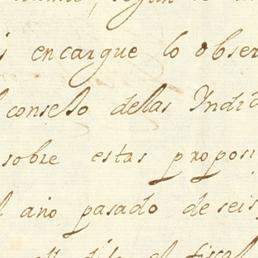 encargue lo obser
consejo delas Indi
sobre estas proposi
año pasado de seis
el fiscal